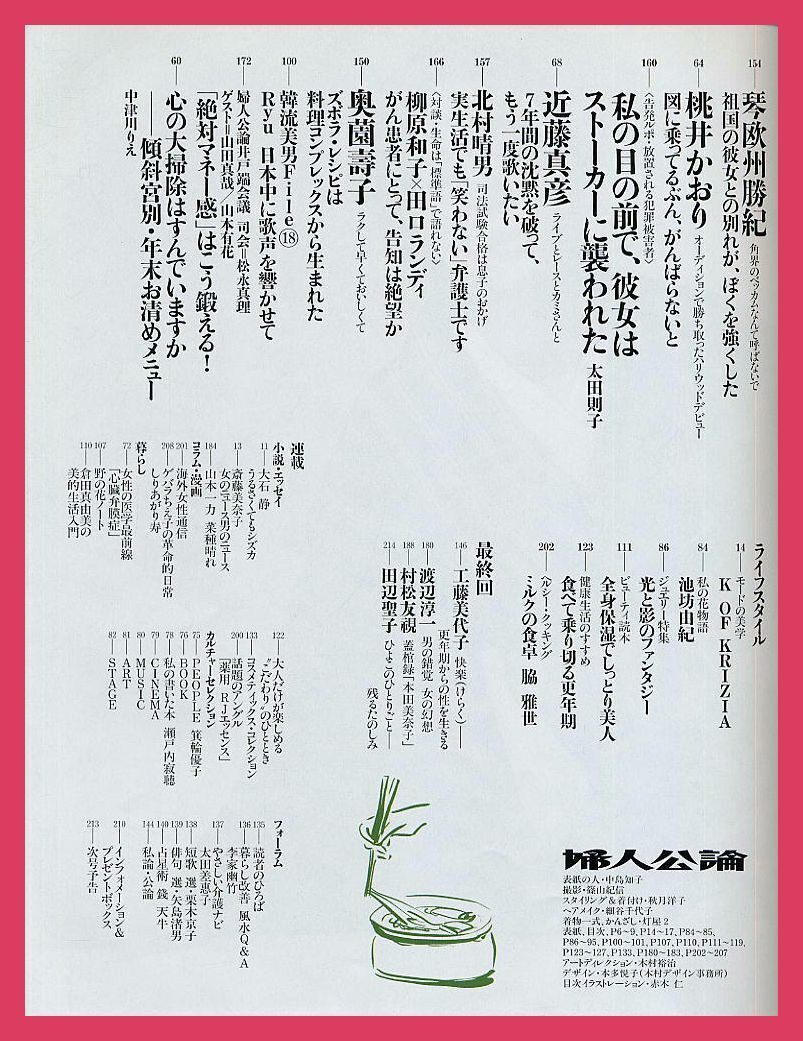 154
琴欧州勝紀 角界のベッカムなんて呼ばないで
祖国の彼女との別れが、ぼくを強くした
64
桃井かおり オーディションで勝ち取ったハリウッドデビュー
図に乗ってるぶん、がんばらないと
160
〈告発ルポ・放置される犯罪被害者〉
私の目の前で、彼女は
ストーカーに襲われた 太田則子
68
近藤真彦 ライブとピースとカミさんと
7年間の沈黙を破って、
もう一度歌いたい
157
北村晴男 司法試験合格は息子のおかげ
実生活でも「笑わない」弁護士です
166
〈対談・生命は「標準語」で語れない〉
柳原和子×田口ランディ
がん患者にとって、告知は絶望か
150
奥薗壽子 ラクして早くておいしくて
ズボラ・レシピは
料理コンプレックスから生まれた
100
韓流美男File⑱
Ryu 日本中に歌声を響かせて
172
婦人公論井戸端会議 司会＝松永真理
ゲスト＝山田真哉／山本有花
「絶対マネー感」はこう鍛える！
60
心の大掃除はすんでいますか
――傾斜宮別・年末お清めメニュー
中津川りえ
ライフスタイル
14 モードの美学
K OF KRIZIA
84 私の花物語
池坊由紀
86 ジュエリー特集
光と影のファンタジー
111 ビューティ読本
全身保湿でしっとり美人
123 健康生活のすすめ
食べて乗り切る更年期
202 ヘルシー・クッキング
ミルクの食卓 脇 雅世
最終回
146 工藤美代子 快楽（けらく）――
更年期からの性を生きる
180 渡辺淳一 男の錯覚 女の幻想
188 村松友視 蓋棺録「本田美奈子」
214 田辺聖子 ひよこのひとりごと――
残るたのしみ
連載
小説・エッセイ
11 大石 静
うるさくてもシズカ
13 斎藤美奈子
女のニュース男のニュース
184 山本一力 菜種晴れ
コラム・漫画
201 海外女性通信
208 ゲバラちえ子の革命的日常
しりあがり寿
暮らし
72 女性の医学最前線
「心臓弁膜症」
107 野の花ノート
110 倉田真由美の
美的生活入門
122 大人だけが楽しめる
“こだわり”のひととき
133 コスメティックス・コレクション
200 話題のアングル
「薬用 RJエッセンス」
カルチャーセレクション
75 PEOPLE 箕輪優子
76 BOOK
78 私の書いた本 瀬戸内寂聴
79 CINEMA
80 MUSIC
81 ART
82 STAGE
フォーラム
135 読者のひろば
136 暮らし改善 風水Q&A
李家幽竹
137 やさしい介護ナビ
太田差惠子
138 短歌 選・栗木京子
139 俳句 選・矢島渚男
140 占星術 錢 天牛
144 私論・公論
210 インフォメーション&
プレゼントボックス
213 次号予告
婦人公論
表紙の人・中島知子
撮影・篠山紀信
スタイリング＆着付け・秋月洋子
ヘアメイク・細谷千代子
着物一式、かんざし・灯屋2
表紙、目次、P6～9、P14～17、P84～85、
P86～95、P100～101、P107、P110、P111～119、
P123～127、P133、P180～183、P202～207
アートディレクション・木村裕治
デザイン・本多悦子（木村デザイン事務所）
目次イラストレーション・赤木 仁